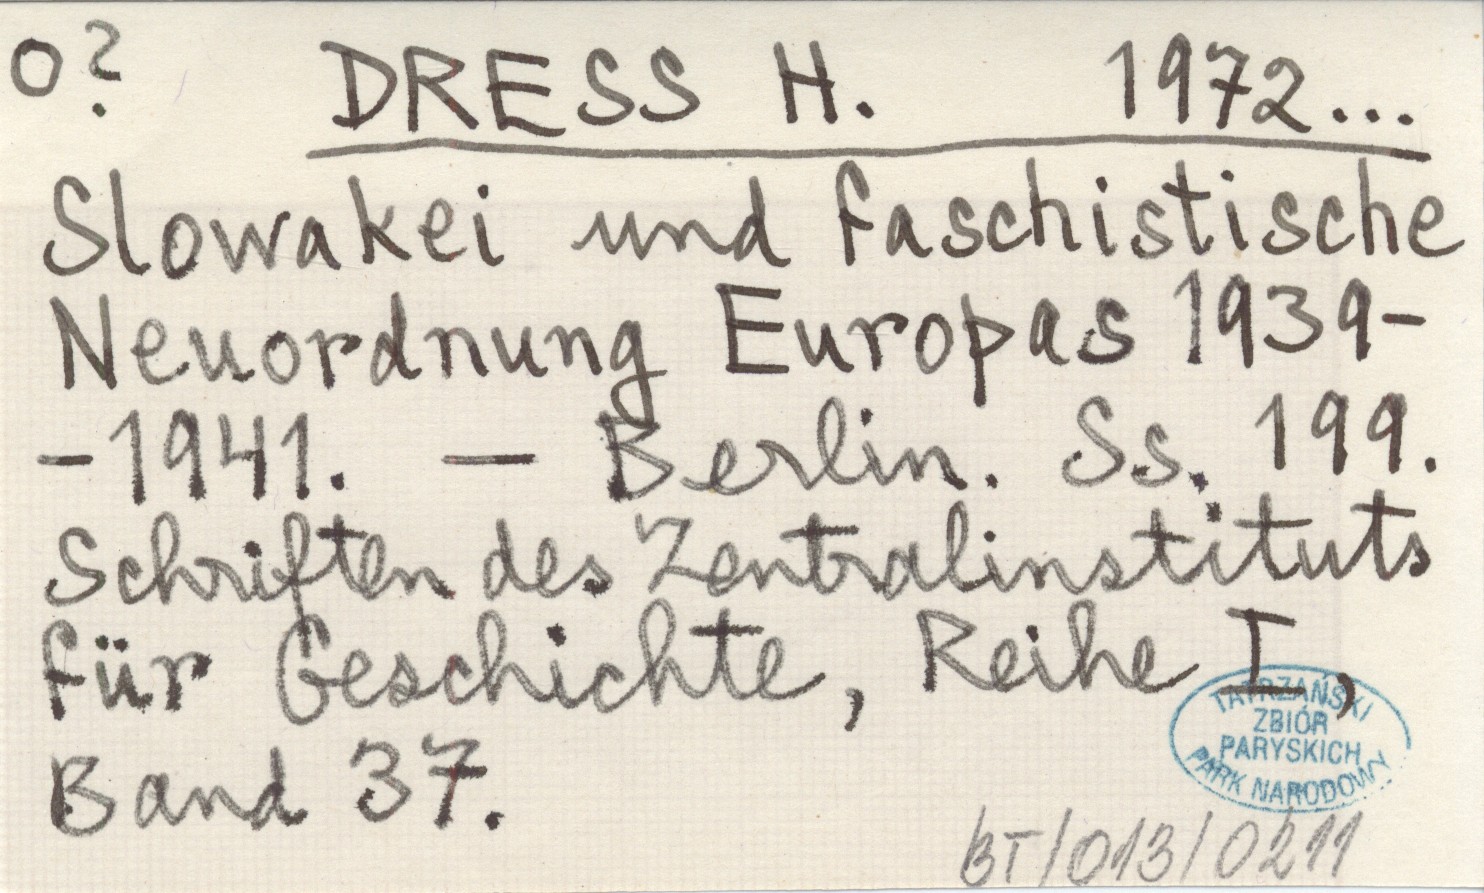 O? DRESS H. 1972...
Slowakei und faschistische
Neuordnung Europas 1939-
-1941. — Berlin. Ss. 199.
Schriften des Zentralinstituts
für Geschichte, Reihe I,
Band 37.
TATRZAŃSKI
ZBIÓR
PARYSKICH
PARK NARODOWY
BT/013/0211